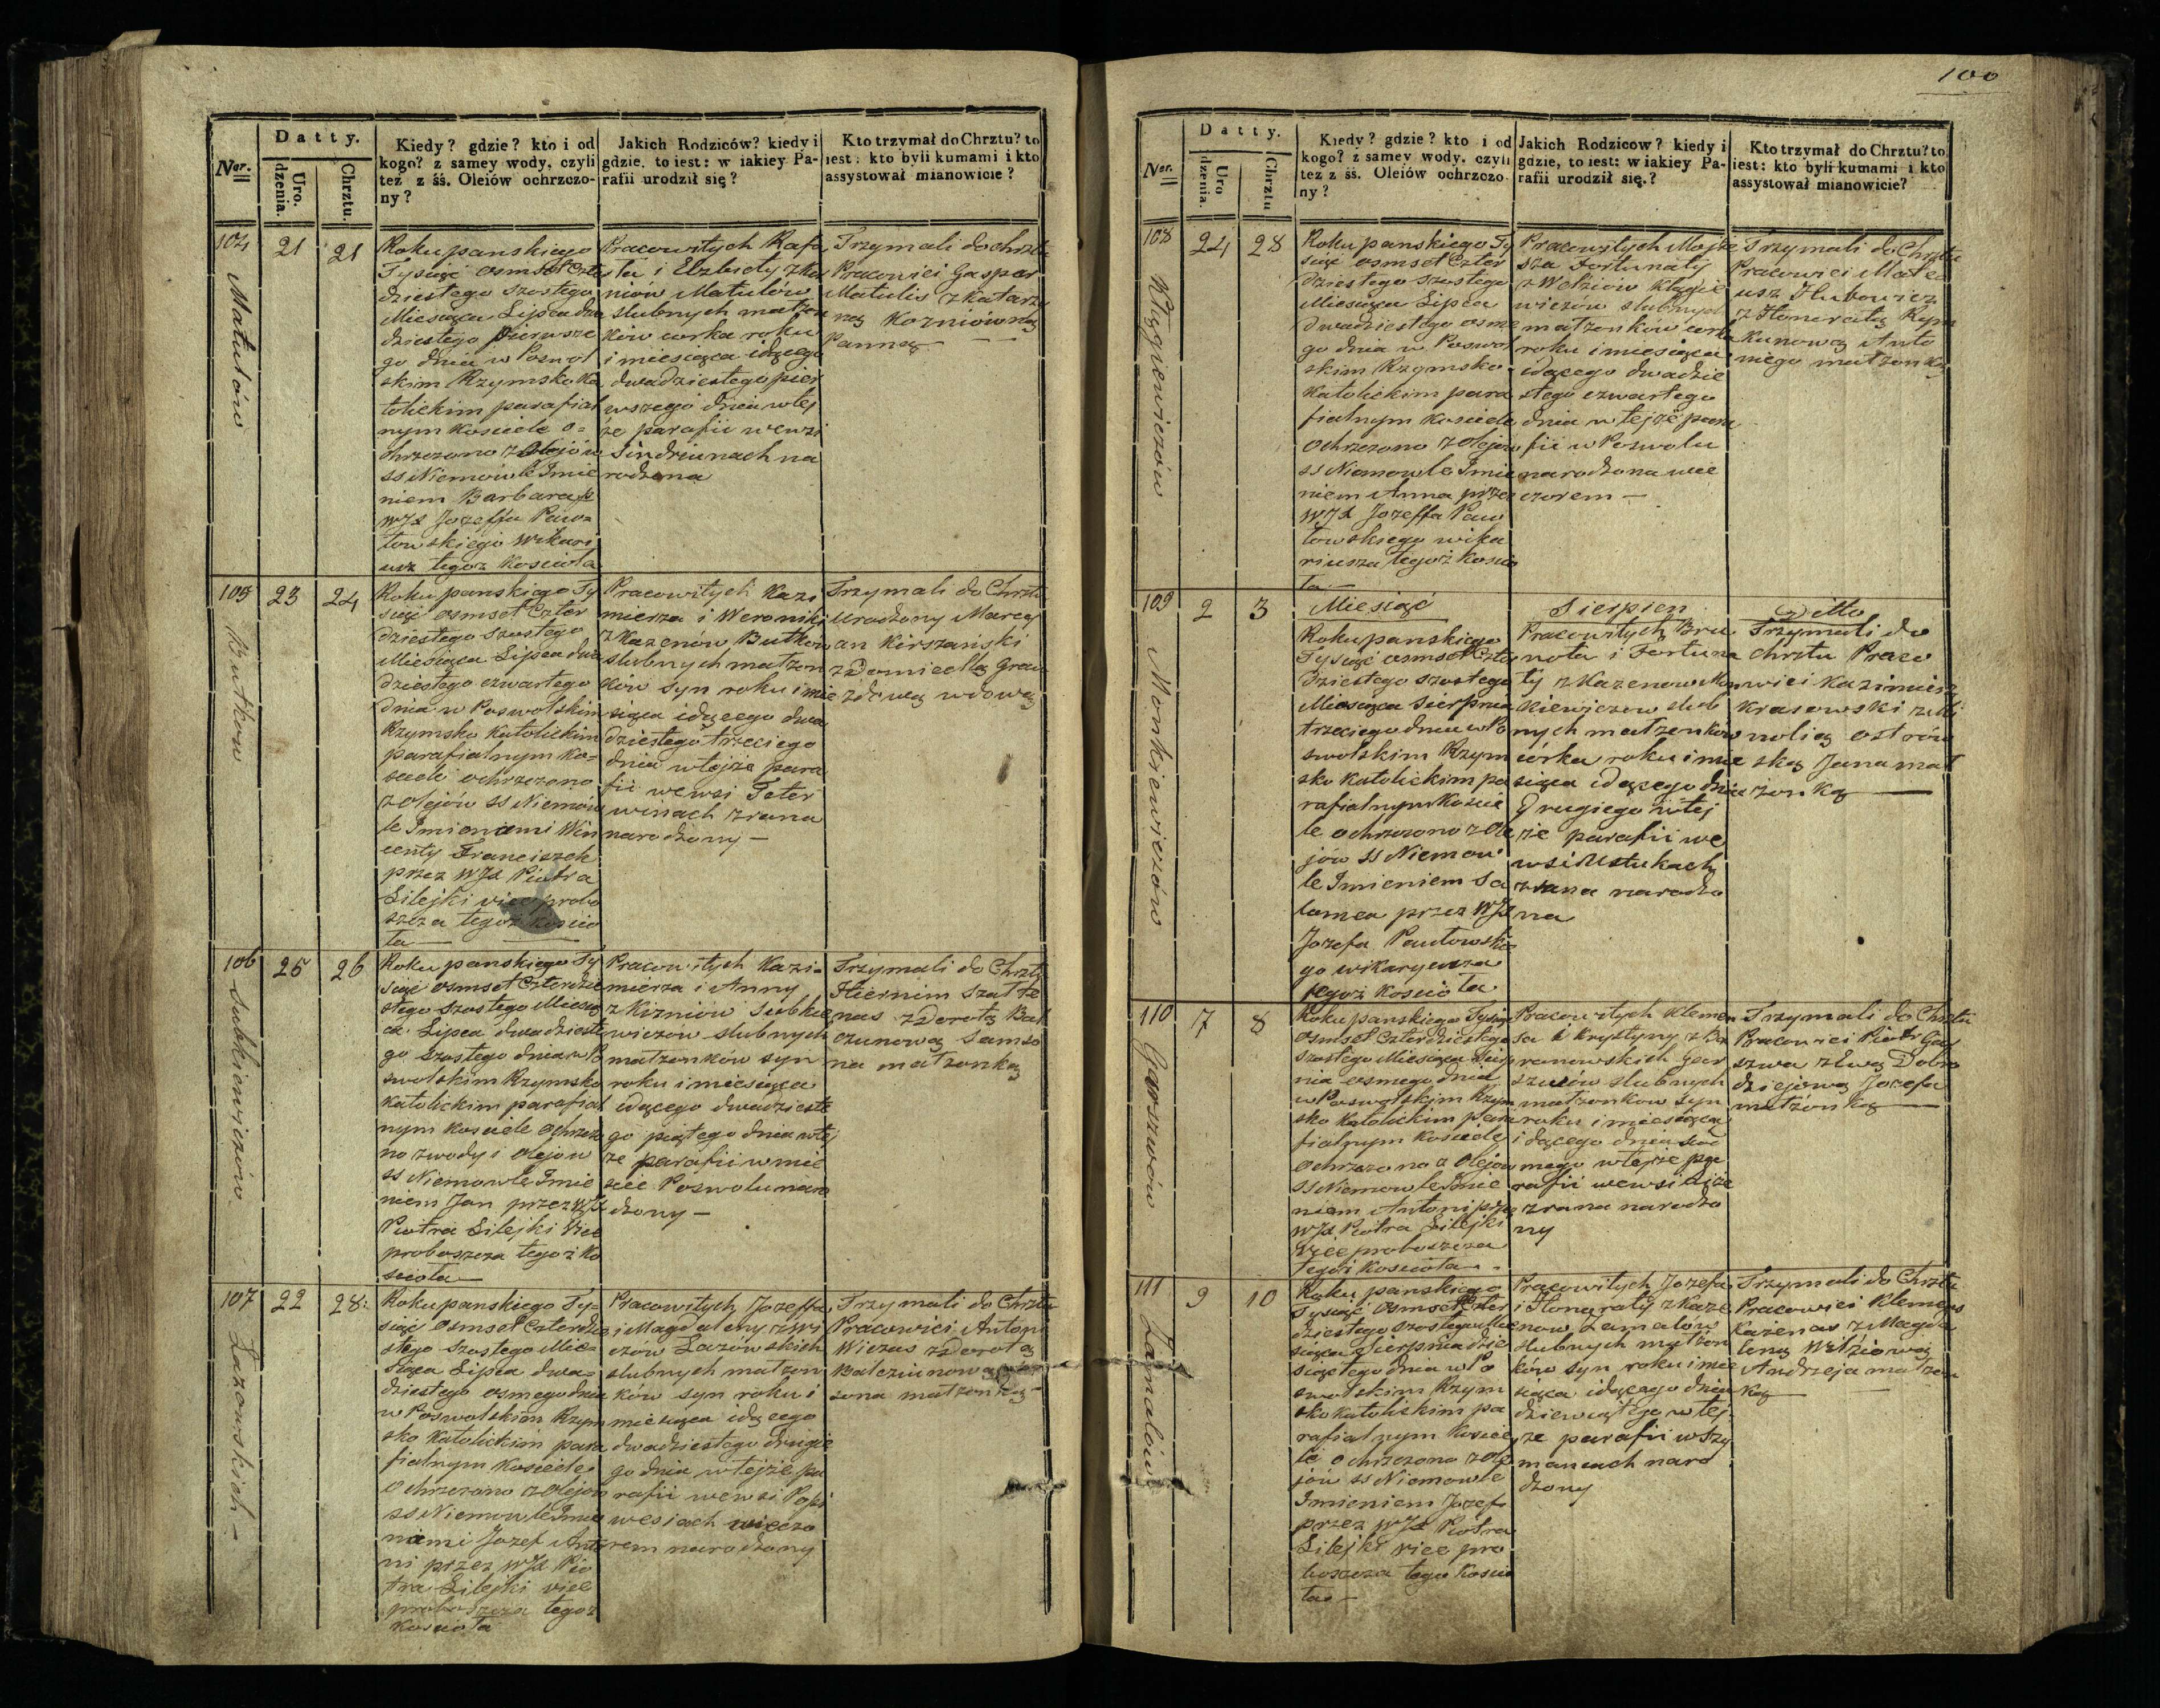 100
Datty.
Ner.
Uro.
dzenia.
Chrztu.
Kiedy? gdzie? kto i od
kogo? z samey wody, czyli
też z śś. Oleiów ochrzczo-
ny?
Jakich Rodziców? kiedy i
gdzie, to iest: w iakiey Pa-
rafii urodził się?
Kto trzymał do Chrztu? to
iest: kto byli kumami i kto
assystował mianowicie?
104
Matulów
21
21
Roku panskiego
Tysiąć osmset czter
dziestego szostego
Miesiąca Lipca dwa
dziestego pierwsze
go dnia w Poswol
skim Rzymsko Ka
tolickim parafial
nym kosciele o=
chrzczono z Olejów
ss Niemowle Imie
niem Barbara p
WJX Jozeffa Paw=
łowskiego Wikary
usz tegoż Koscioła
Pracowitych Rafa
ła i Elzbiety z Ku
niów Matulów
slubnych małżon
ków corka roku
i miesiąca idącego
dwadziestego pier
wszego dnia w tej
że parafii we wsi
Sindriunach na
rodzona
Trzymali do chrztu
Pracowici Gasper
Matulis z Katarzy
ną Kozniówną
Panną
105
Butkow
23
24
Roku panskiego Ty
siąć osmset czter
dziestego szostego
Miesiąca Lipca dwa
dziestego czwartego
dnia w Poswolskim
Rzymsko Katolickim
parafialnym Ko=
sciele ochrzczono
z Olejów ss Niemów
le Imionami Win
centy Franciszek
przez WJX Piotra
Lilejki vice probo
szcza tegoż koscio
ła
Pracowitych Kazi
mierza i Weroniki
z Kazenów Butków
slubnych małżon
ków syn roku i mie
siąca idącego dwa
dziestego trzeciego
dnia w tejże para
fii we wsi Peter
winach z rana
narodzony
Trzymali do Chrztu
urodzony Marcy
an Kirszański
z Domicellą Grau
żdewą wdową
106
Subkiewiczów
25
26
Roku panskiego Ty
siąć osmset czterdzie
stego szostego Miesią
ca Lipca dwadzieste
go szostego dnia w Po
swolskim Rzymsko
katolickim parafial
nym kosciele ochrzczo
no z wody i olejow
ss Niemowle Imie
niem Jan przez WJX
Piotra Lilejki Vice
proboszcza tegoż Ko
scioła
Pracowitych Kazi=
mierza i Anny
z Kizniów Subkie
wiczów slubnych
małżonków syn
roku i miesiąca
idącego dwadzieste
go piątego dnia w tej
że parafii w mie
scie Poswolu naro
dzony
Trzymali do Chrztu
Hiernim Szałte
nas z Dorotą Bal
czunową Samso
na małżonką
107
Lazowskich
22
28
Roku panskiego Ty=
siąć osmset czterdzie
stego szostego Mie=
siąca Lipca dwa=
dziestego osmego dnia
w Poswolskim Rzym
sko Katolickim para
fialnym Kosciele
Ochrzczono z olejow
ss Niemowle Imio
nami Jozef Anto
ni przez WJX Pio
tra Lilejki vice
proboszcza tegoż
kosciola
Pracowitych Jozeffa
i Magdaleny z Wi
czów Lazowskich
slubnych małżon
ków syn roku i
miesiąca idącego
dwadziestego drugie
go dnia w tejże pa
rafii we wsi Popi
wesiach wieczo
rem narodzony
Trzymali do Chrztu
Pracowici Antoni
Wiczas z Dorotą
Balcziunową
sona małżonką
Datty.
Ner.
Uro
dzenia.
Chrztu
Kiedy? gdzie? kto i od
kogo? z samey wody, czyli
też z śś. Oleiów ochrzczo-
ny?
Jakich Rodzicow? kiedy i
gdzie, to iest: w iakiey Pa-
rafii urodził się.?
Kto trzymał do Chrztu? to
iest: kto byli kumami i kto
assystował mianowicie?
108
Klygiewiczów
24
28
Roku panskiego Ty
siąć osmset czter
dziestego szostego
Miesiąca Lipca
dwadziestego osme
go dnia w Poswol
skim Rzymsko
Katolickim para
fialnym kosciele
Ochrzczono z olejow
ss Niemowle Imie
niem Anna przez
WJX Jozeffa Paw
łowskiego wika
riusza tegoż koscio
ła
Pracowitych Mojże
sza Fortunaty
z Welziów Klygie
wiczów slubnych
małżonków corka
roku i miesiąca
idącego dwadzie
stego czwartego
dnia w tejże para
fii w Poswolu
narodzona wie
czorem
Trzymali do Chrztu
Pracowici Mate
usz Hubowicz
z Honoratą Rym
kunową Anto
niego małżonką
109
Monkiewiczów
2
3
Miesiąć
Sierpien
Ditto
Roku panskiego
Tysiąć osmset czter
dziestego szostego
Miesiąca Sierpnia
trzeciego dnia w Po
swolskim Rzym
sko katolickim pa
rafialnym koscie
le ochrzczono z Ole
jów ss Niemow
le Imieniem Sa
lomea przez WJX
Jozefa Pawłowskie
go wikaryusza
tegoż kosciola
Pracowitych Bru
nota i Fortuna
ty z Kazenow Mon
kiewiczow slub
nych małżenków
córka roku i mie
siąca idącego dnia
Drugiego w tej
że parafii we
wsi Ustukach
z rana narodzo
na
Trzymali do
chrztu Praco
wici Kazimierz
Krasowski z Mi
nolią ostrow
ską Jana mał
żonką
110
Garszwów
7
8
Roku panskiego Tysiąć
Osmset czterdziestego
szostego Miesiąca Sierp
nia osmego dnia
w Poswolskim Rzym
sko Katolickim para
fialnym kosciele
Ochrzczono z Olejow
ss Niemowle Imie
niem Antoni przez
WJX Piotra Lilejki
vice proboszcza
tegoż kosciola
Pracowitych Klemen
sa i Krystyny z Ba
ranowskich Gar
szwów slubnych
małżonkow syn
roku i miesiąca
idącego dnia siod
mego w tejże pa
rafii we wsi
z rana narodzo
ny
Trzymali do Chrztu
Pracowici Piotr Gar
szwa z Ewą Dobro
dziejową Jozefa
małżonką
111
Zamalów
9
10
Roku panskiego
Tysiąć osmset czter
dziestego szostego Mie
siąca Sierpnia dzie
siątego dnia w Po
swolskim Rzym
sko katolickim pa
rafialnym koscie
le ochrzczono z Ole
jów ss Niemowle
Imieniem Jozef
przez WJX Piotra
Lilejki vice pro
boszcza tego koscio
ła
Pracowitych Jozefa
i Honoraty z Kaze
now Zamalów
slubnych małżon
ków syn roku i mie
siąca idącego dnia
dziewiątego w tej
że parafii w Szy
mancach naro
dzony
Trzymali do Chrztu
Pracowici Klemens
Kazenas z Magda
leną Welziową
Andrzeja małzon
ką